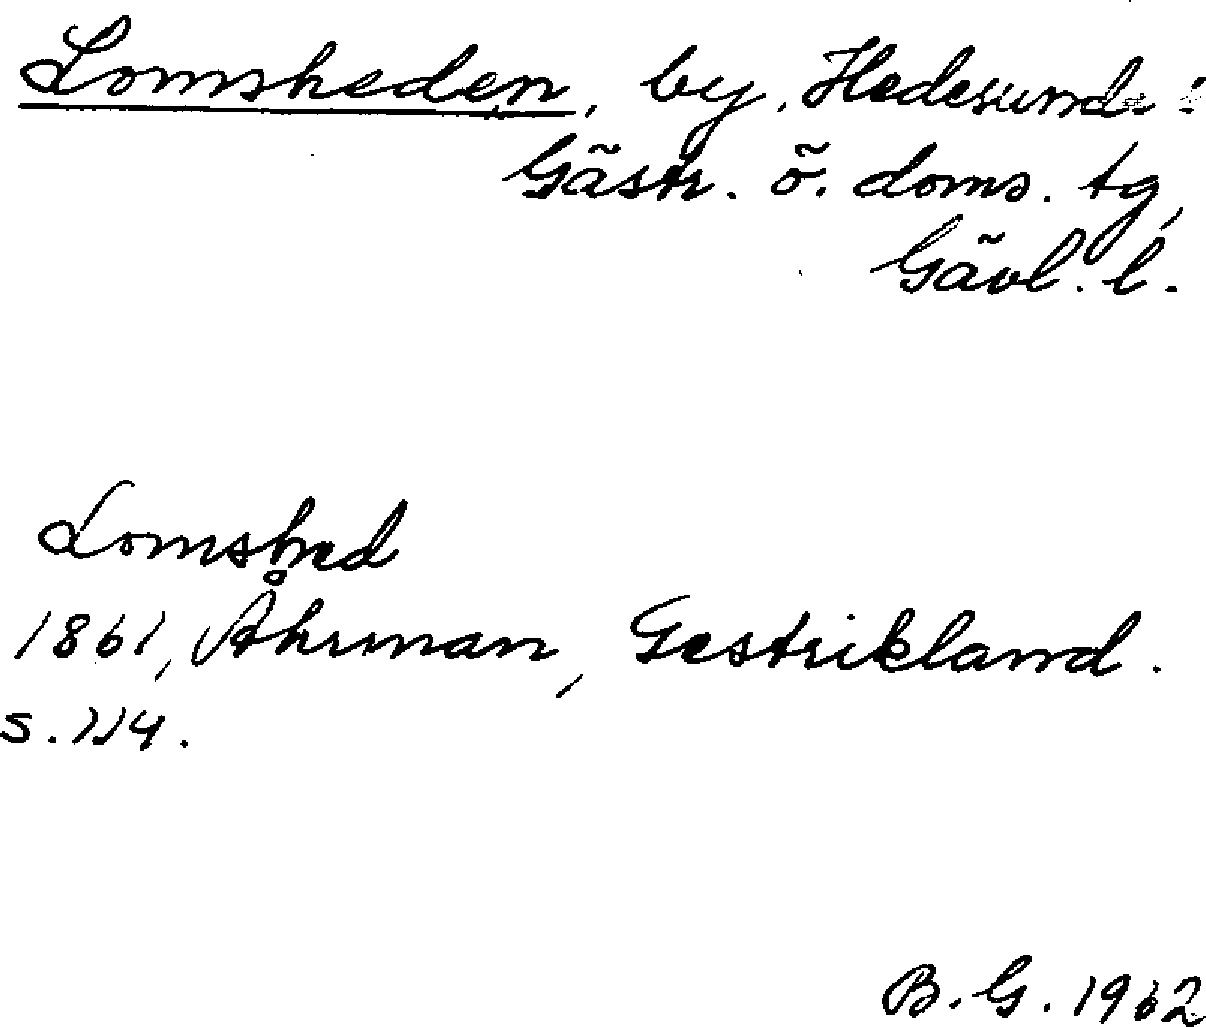 Lomsheden, by, Hedesunda
Gästr. ö. doms. tg,
Gävl. l.
Lomshed
1861, Åhrman, Gestrikland.
s. 114.
B. G. 1962